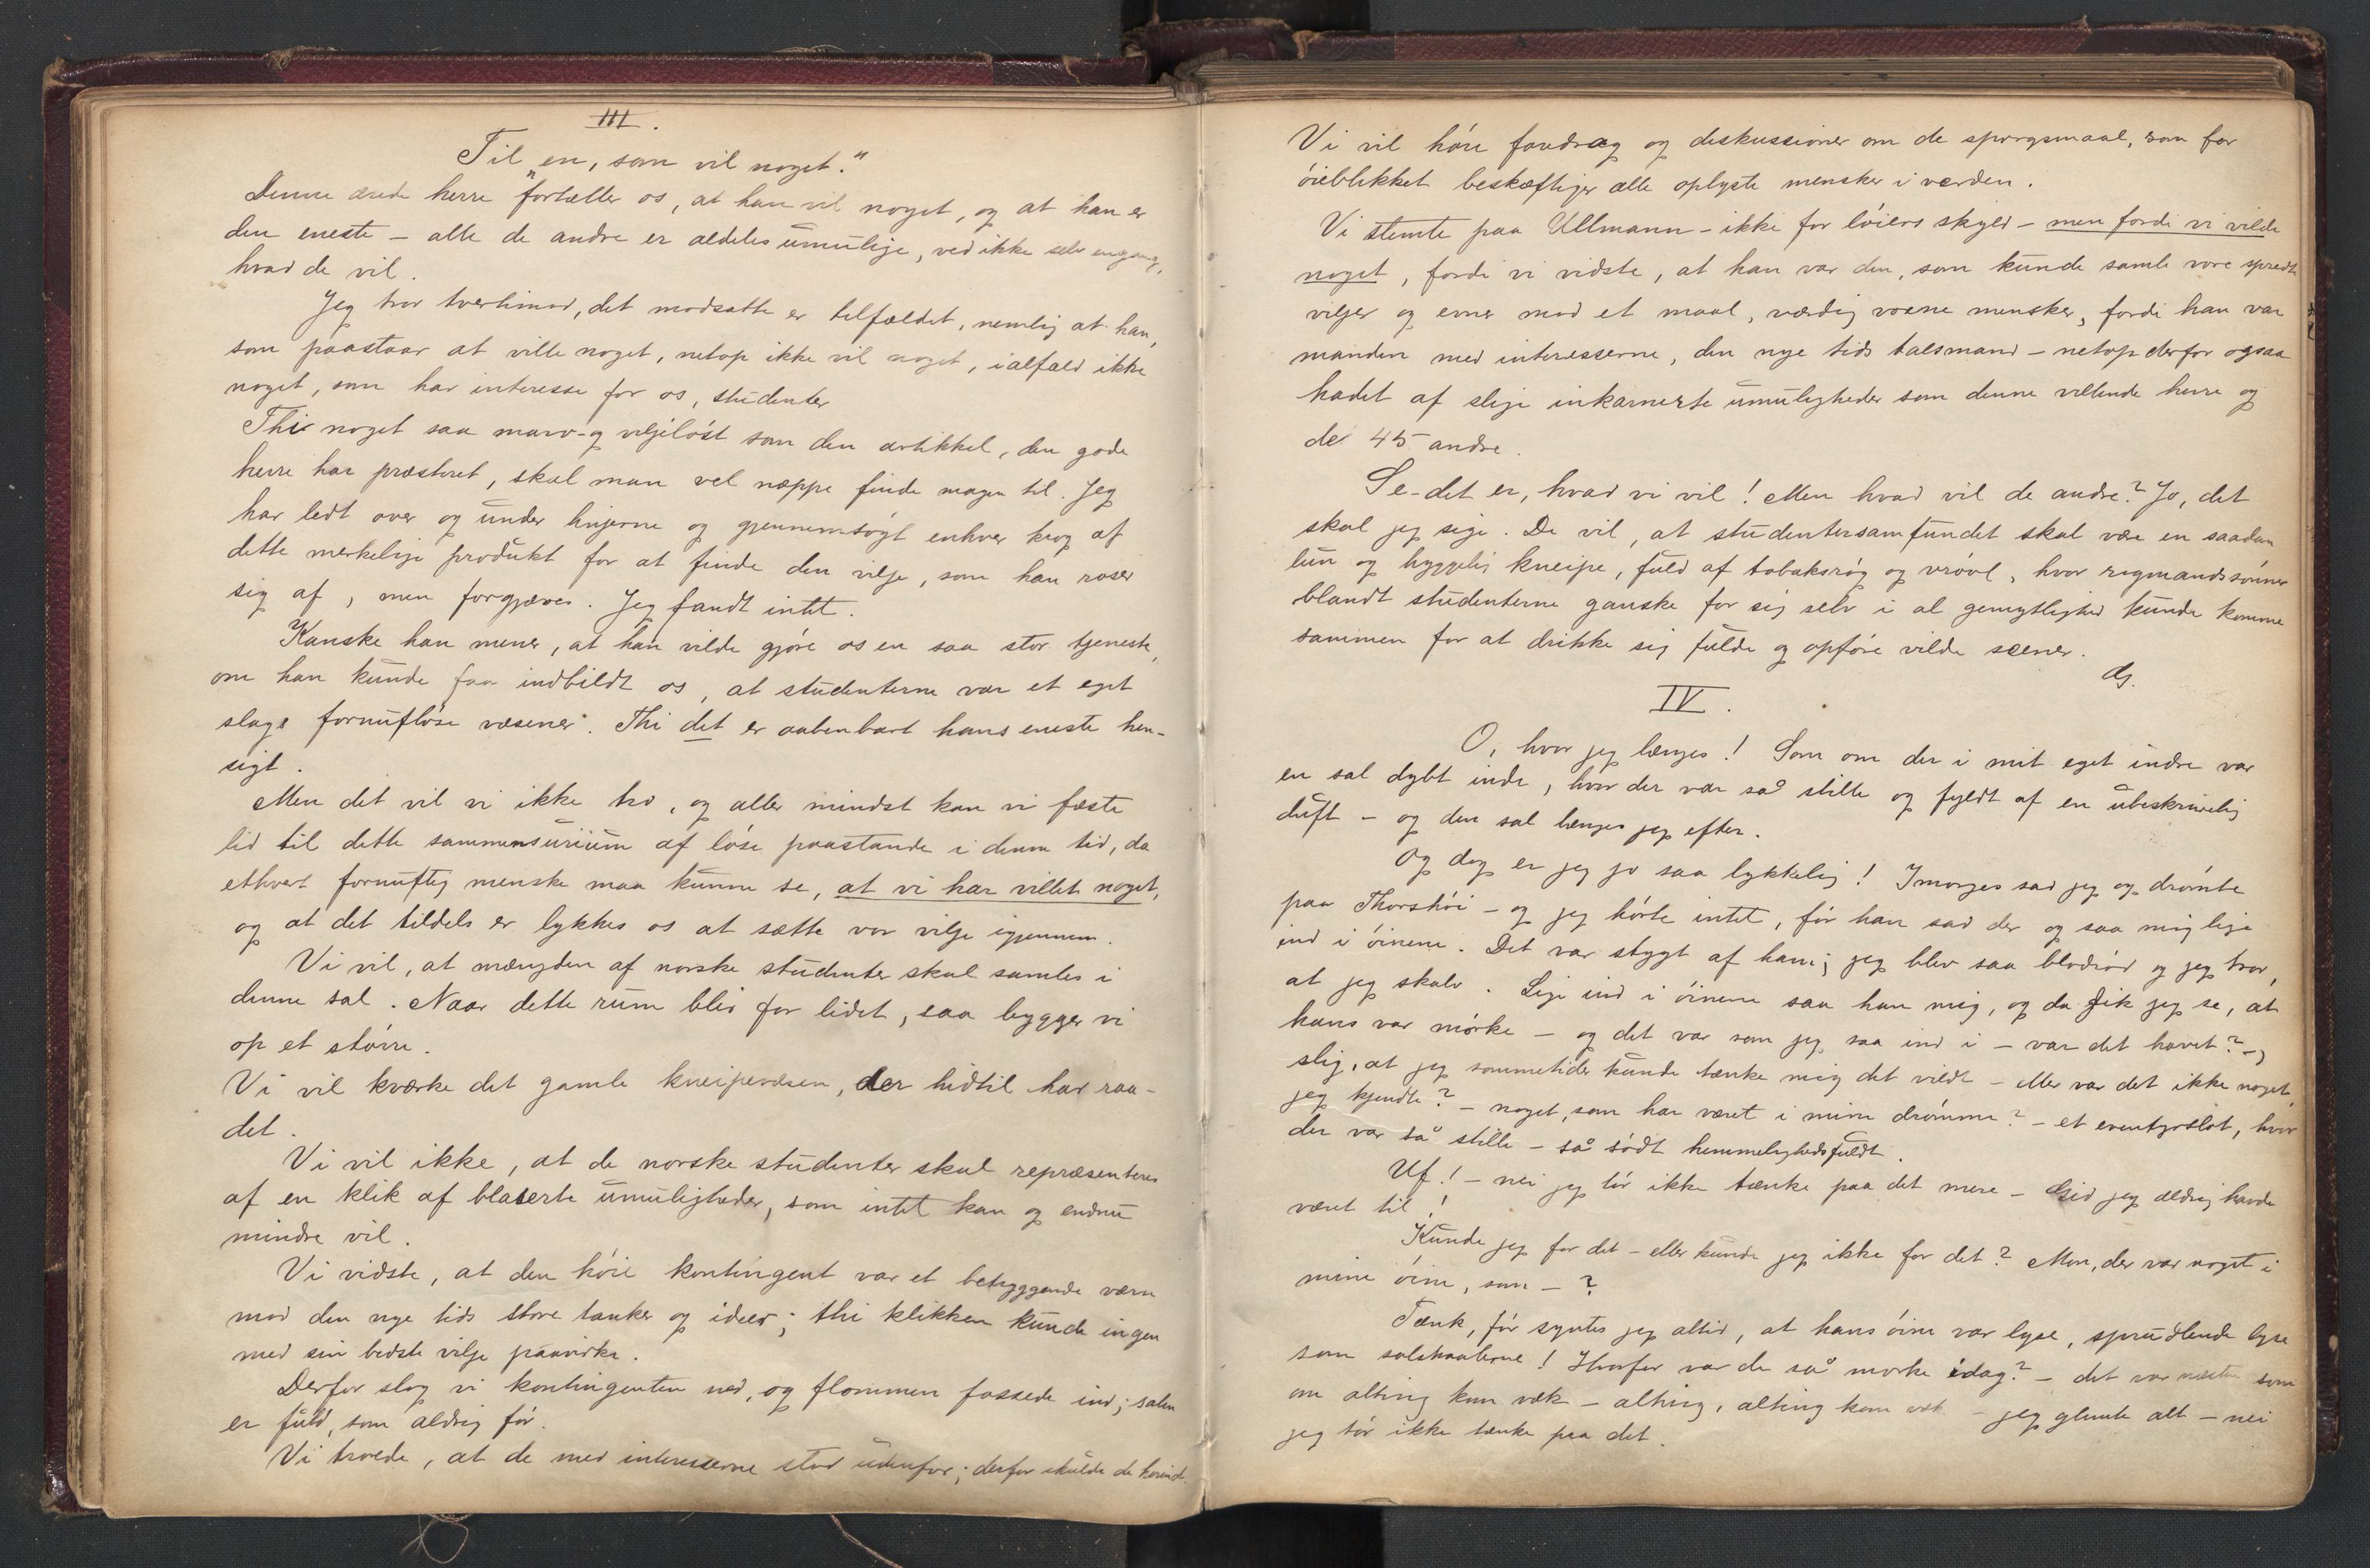 III.
Til „en, som vil noget."
Denne ærede herre fortæller os, at han vil noget, og at han er
den eneste – alle de andre er aldeles umulige, ved ikke selv engang,
hvad de vil.
Jeg tror tvertimod, det modsatte er tilfældet, nemlig at han,
som paastaar at ville noget, netop ikke vil noget, ialfald ikke
noget, som har interesse for os, studenter
Thi noget saa marv- og viljeløst som den artikkel, den gode
herre har præsteret, skal man vel neppe finde magen til. Jeg
har ledt over og under linjerne og gjennemsøgt enhver krog af
dette merkelige produkt for at finde den vilje, som han roser
sig af, men forgjæves. Jeg fandt intet.
Kanske han mener, at han vilde gjøre os en saa stor tjeneste,
om han kunde faa indbildt os, at studenterne var et eget
slags fornufløse væsener. Thi det er aabenbart hans eneste hen-
sigt.
Men det vil vi ikke tro, og aller mindst kan vi fæste
lid til dette sammensurium af løse paastande i denne tid, da
ethvert fornuftig menske maa kunne se, at vi har villet noget,
og at det tildels er lykkes os at sætte vor vilje igjennem.
Vi vil, at mængden af norske studenter skal samles i
denne sal. Naar dette rum blir for lidet, saa bygger vi
op et større.
Vi vil kværke det gamle kneipevæsen, der hidtil har raa-
det.
Vi vil ikke, at de norske studenter skal repræsenteres
af en klik af blaserte umuligheder, som intet kan og endnu
mindre vil.
Vi vidste, at den høie kontingent var et betryggende værn
mod den nye tids store tanker og ideer; thi klikken kunde ingen
med sin bedste vilje paavirke.
Derfor slog vi kontingenten ned, og flommen fossede ind; salen
er fuld, som aldrig før.
Vi troede, at de med interesserne stod udenfor; derfor skulde de herind.
Vi vil høre foredrag og diskussioner om de spørgsmaal, som for
øieblikket beskæftiger alle oplyste mensker i verden.
Vi stemte paa Ullmann – ikke for løiers skyld – men fordi vi vilde
noget, fordi vi vidste, at han var den, som kunde samle vore spredte
viljer og evner mod et maal, værdig voxne mensker, fordi han var
manden med interesserne, den nye tids talsmand – netop derfor ogsaa
hadet af slige inkarnerte umuligheder som denne villende herre og
de 45 andre.
Se – det er, hvad vi vil! Men hvad vil de andre? Jo, det
skal jeg sige. De vil, at studentersamfundet skal være en saadan
lun og hyggelig kneipe, fuld af tobaksrøg og vrøvl, hvor rigmandssønner
blandt studenterne ganske for sig selv i al gemytlighed kunde komme
sammen for at drikke sig fulde og opføre vilde scener.
ds.
IV.
O, hvor jeg længes! Som om der i mit eget indre var
en sal dybt inde, hvor der var så stille og fyldt af en ubeskrivelig
duft – og den sal længes jeg efter.
Og dog er jeg jo saa lykkelig! Imorges sad jeg og drømte
paa Thorshøi – og jeg hørte intet, før han sad der og saa mig lige
ind i øinene. Det var stygt af ham; jeg blev saa blodrød og jeg tror,
at jeg skalv. Lige ind i øinene saa han mig, og da fik jeg se, at
hans var mørke – og det var som jeg saa ind i – var det havet? –,
slig, at jeg sommetider kunde tænke mig det vildt – eller var det ikke noget,
jeg kjendte? – noget, som har været i mine drømme? – et eventyrslot, hvor
der var så stille – så sødt hemmelighedsfuldt.
Uf! – nei jeg tør ikke tænke paa det mere – Gid jeg aldrig havde
været til!
Kunde jeg for det – eller kunde jeg ikke for det? Mon, der var noget i
mine øine, som – ?
Tænk, før syntes jeg altid, at hans øine var lyse, sprudlende lyse
som solstraalerne! Hvorfor var de så mørke idag? – det var næsten som
om alting kom væk – alting, alting kom væk – jeg glemte alt – nei
jeg tør ikke tænke paa det.